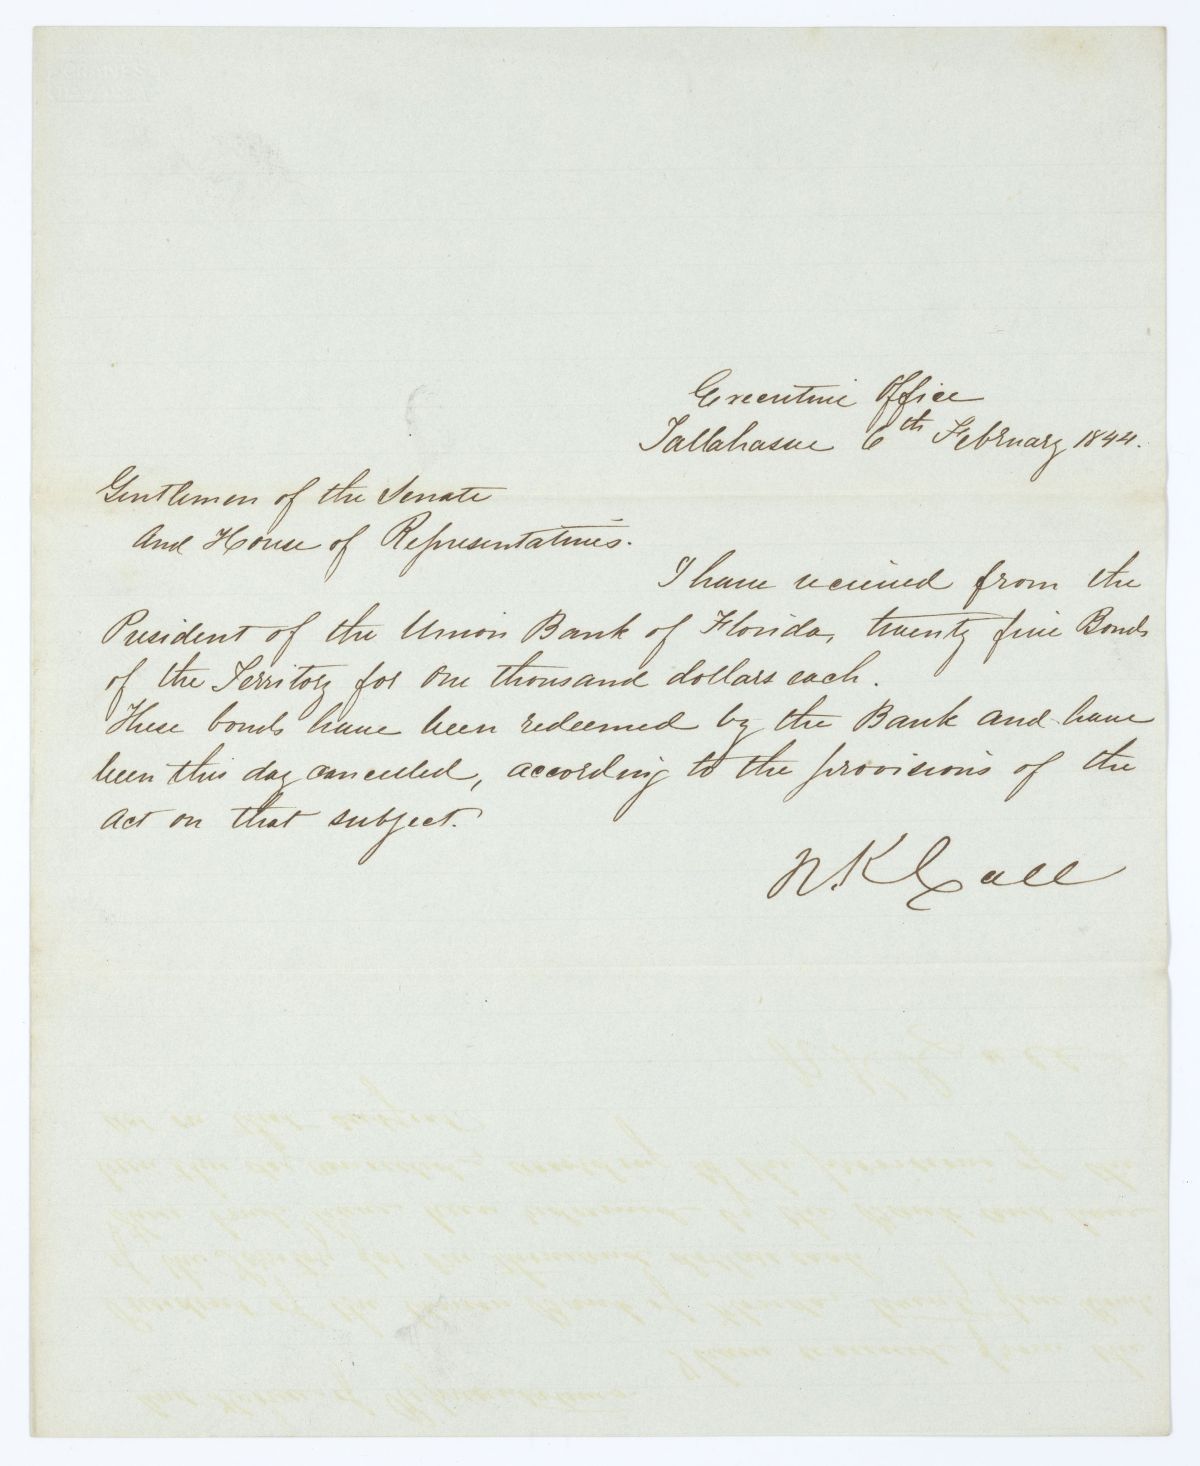 Executive Office
Tallahassee 6th February 1844.
Gentlemen of the Senate
And House of Representatives.
I have received from the
President of the Union Bank of Florida, twenty five Bonds
of the Territory for One thousand dollars each.
These bonds have been redeemed by the Bank and have
been this day cancelled, according to the provisions of the
Act on that subject.
R. K Call